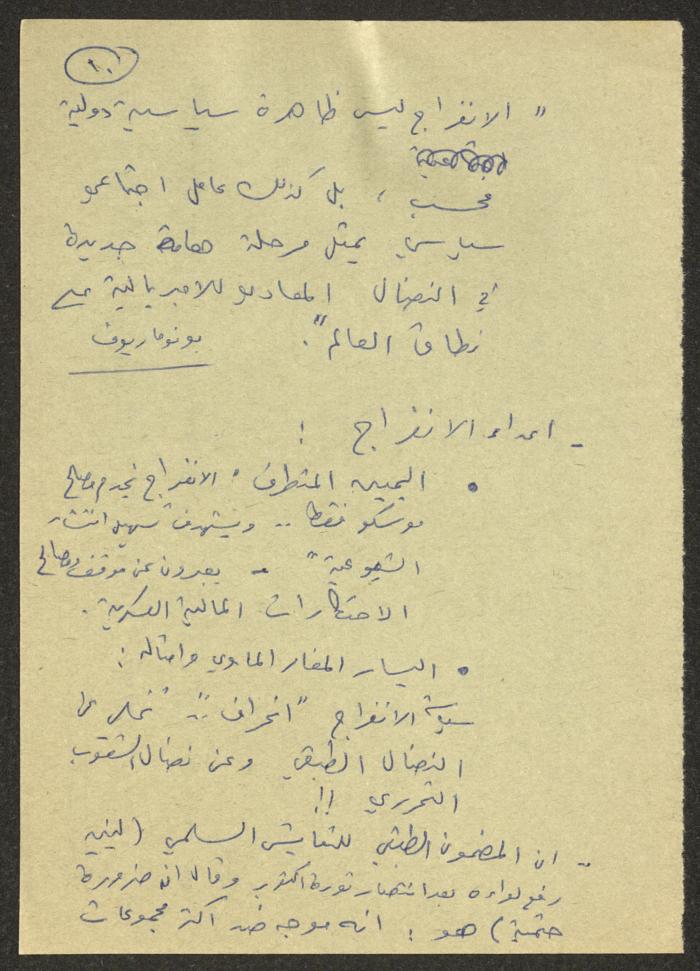 ١٠
" الانفراج ليس ظاهرة سياسية دولية
فحسب ، بل كذلك عامل اجتماعي
سياسي يمثل مرحلة هامة جديدة
في النضال المعادي للامبريالية على
نطاق العالم ". بونوماريوف
- اعداء الانفراج :
• اليمين المتطرف " الانفراج يخدم مصالح
موسكو فقط .. ويستهدف تسهيل انتشار
الشيوعية " - يعبرون عن موقف ومصالح
الاحتكارات المالية العسكرية .
• اليسار المغامر الماوي وامثاله :
سياسة الانفراج " انحراف .. " تخلي عن
النضال الطبقي وعن نضال الشعوب
التحرري !!
- ان المضمون الطبقي للتعايش السلمي ( لينين
رفع لواءه بعد انتصار ثورة اكتوبر وقال انه ضرورة
حتمية ) هو : انه موجه ضد اكثر مجموعات